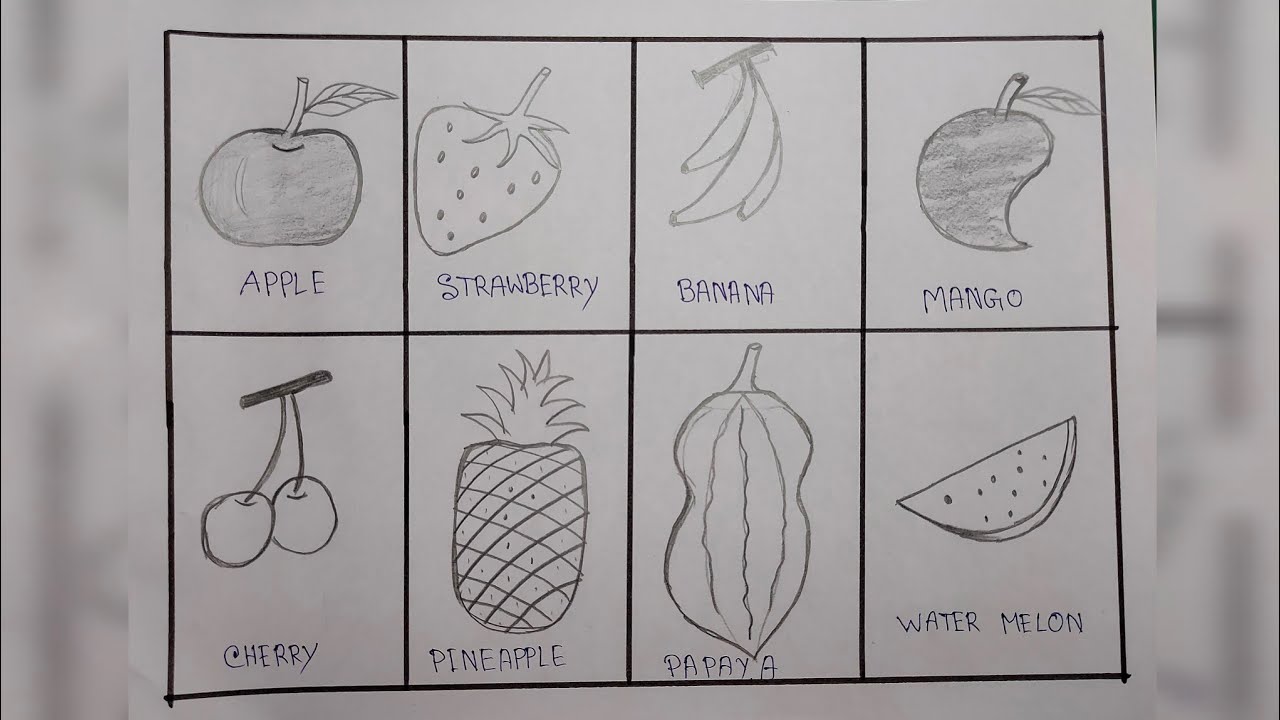 APPLE
STRAWBERRY
BANANA
MANGO
CHERRY
PINEAPPLE
PAPAYA
WATER MELON